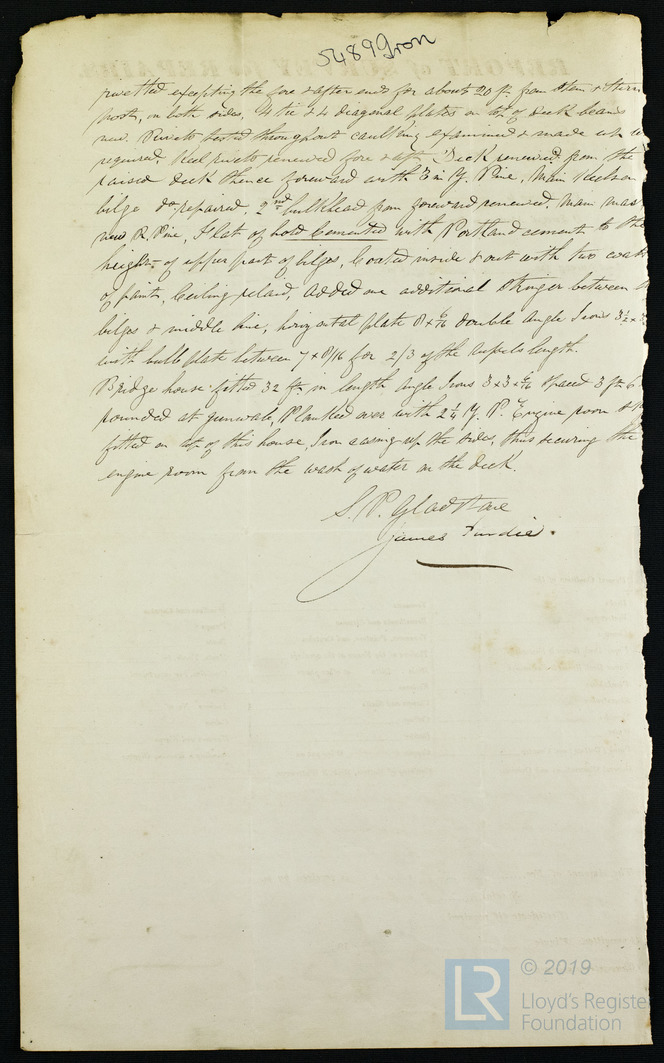 5489 Iron
rivetted excepting the fore & after ends for about 20 ft from stem & stern
posts, on both sides, 4 tie & 4 diagonal plates on top of deck beams
new. Rivets tested throughout caulking examined & made up
required, Keel rivets renewed fore & aft. Deck renewed from the
raised deck thence forward with 3 in Y. Pine, Main Keelson
bilge do repaired, 2nd bulkhead from forward renewed, Main mast
new R. Pine, Flat of hold Cemented with Portland cement to the
height of upper part of bilges, Coated inside & out with two coats
of paint, Ceiling relaid, added one additional Stringer between
bilges & middle line, horizontal plate 8 x 6/16 double angle Irons 3½ x 3
with bulb plate between 7 x 8/16 for 2/3 of the vessels length.
Bridge house fitted 32 ft in length angle Irons 3 x 3 x 6/16 spaced 3 ft 6
rounded at gunwale, Planked over with 2½ Y. P. Engine room
fitted on top of this house, Iron casing up the sides, thus securing the
engine room from the wash of water on the deck.
S. P. Gladstone
James Purdie.
REPORT of SURVEY for REPAIRS.
LR
© 2019
Lloyd's Register
Foundation